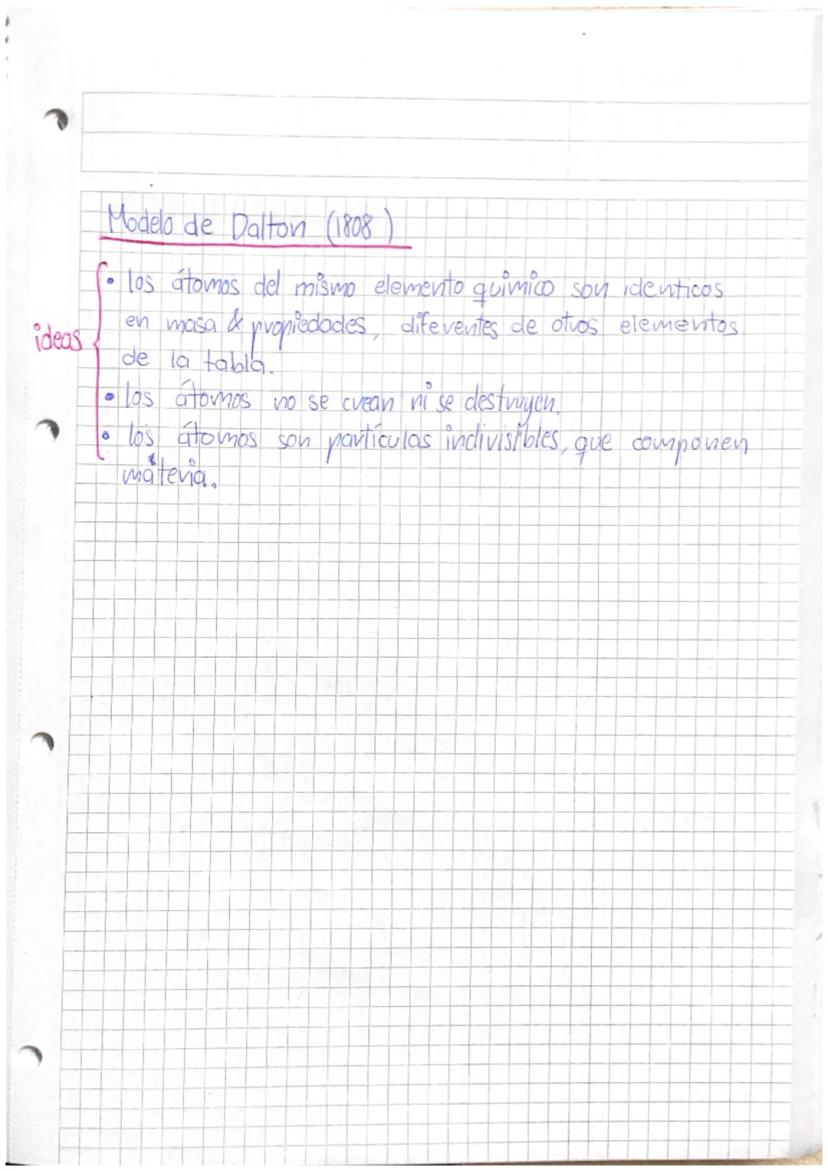 Modelo de Dalton (1808)
• los átomos del mismo elemento químico son identicos
ideas
en masa & propiedades, diferentes de otros elementos
de la tabla.
• los átomos no se crean ni se destruyen.
• los átomos son partículas indivisibles, que componen
materia.